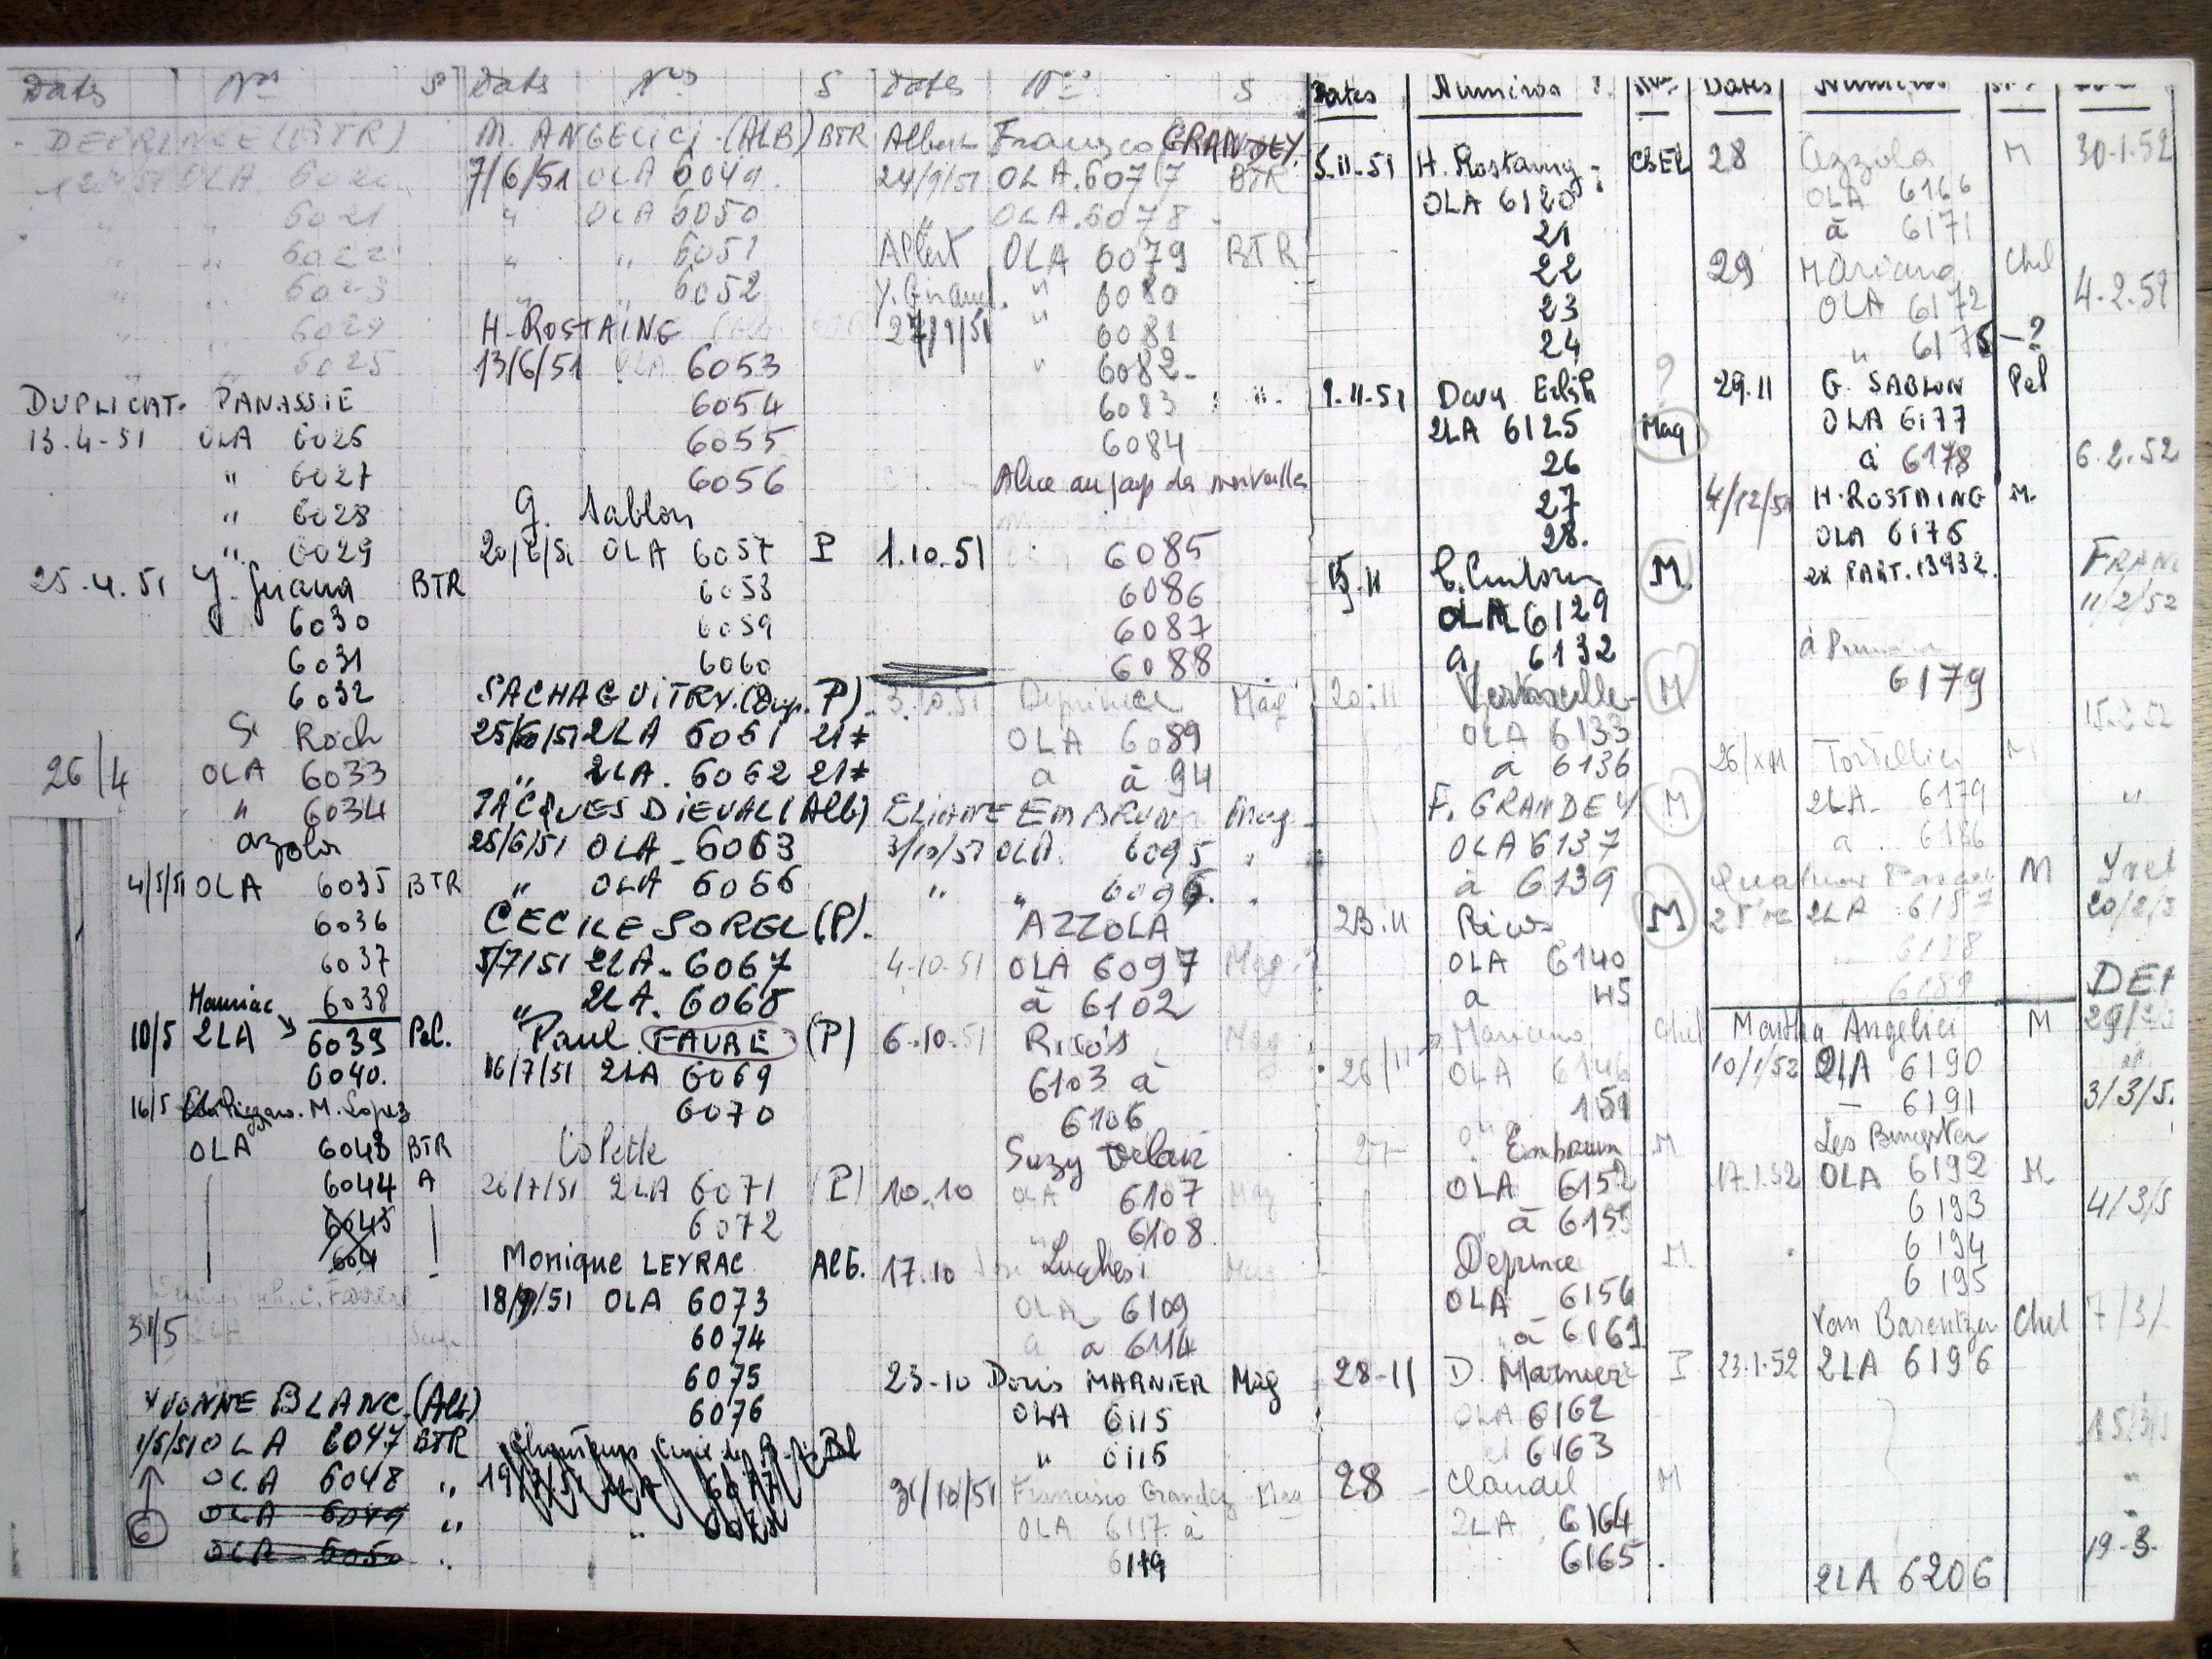 Dates Nos S
DEPRINCE (BTR)
OLA 6020
" " 6021
" " 6022
" " 6023
" " 6024
" " 6025
DUPLICAT. PANASSIE
13.4-51 OLA 6026
" 6027
" 6028
" 6029
25.4.51 Y. Guana BTR
6030
6031
6032
St Roch
26/4 OLA 6033
" 6034
azzola
4/5/51 OLA 6035 BTR
6036
6037
Mauriac 6038
10/5 2LA 6039 Pel.
6040.
16/5 M. Lopez
OLA 6043 BTR
6044 A
6045
604
31/5 2LA
YVONNE BLANC (Alb)
1/5/51 OLA 6047 BTR
OLA 6048 "
OLA 6049 "
6 OLA 6050 "
Dates Nos S
M. ANGELICI (ALB) BTR
7/6/51 OLA 6049.
" OLA 6050
" " 6051
" " 6052
H. ROSTAING
13/6/51 OLA 6053
6054
6055
6056
G. Sablon
20/6/51 OLA 6057 P
6058
6059
6060
SACHA GUITRY. (Dup. P)
25/6/51 2LA 6061 21*
" 2LA. 6062 21*
JACQUES DIEVAL (Alb)
25/6/51 OLA - 6063
" OLA 6066
CECILE SOREL (P).
5/7/51 2LA - 6067
" 2LA. 6068
Paul FAURE (P)
16/7/51 2LA 6069
6070
Colette
26/7/51 2LA 6071 (P)
6072
Monique LEYRAC Alb.
18/9/51 OLA 6073
6074
6075
6076
Dates Nos S
Albert Francisco GRANDEY.
24/9/51 OLA. 6077 BTR
" OLA. 6078 -
Albert OLA 6079 BTR
Y. Guana. " 6080
27/9/51 " 6081
" 6082-
6083 "
6084
Alice au pays des merveilles
1.10.51 6085
6086
6087
6088
3.10.51 Deprince Mag
OLA 6089
a à 94
ELIANE EMBRUN Mag
3/10/51 OLA. 6095 "
" " 6096. "
AZZOLA
4-10-51 OLA 6097 Mag
à 6102
6.10.51 Rico's Mag
6103 à
6106
Suzy Delair
10.10 OLA 6107 Mag
" 6108
17.10 Luchesi Mag
OLA 6109
a à 6114
23-10 Doris MARNIER Mag
OLA 6115
" 6115
31/10/51 Francisco Grandey Mag
OLA 6117 à
6119
Dates Numéros
5.11.51 H. Rostaing CHEL
OLA 6120
21
22
23
24
9.11.51 Dany ?
2LA 6125 Mag
26
27
28.
15.11 M.
OLA 6129
a 6132
20.11 M
OLA 6133
a 6136
F. GRANDEY M
OLA 6137
à 6139
23.11 Ricos M
OLA 6140
a 45
26/11 Mariano Chel
OLA 6146
151
27 Embrun M
OLA 6152
à 6155
Deprince M
OLA 6156
à 6161
28-11 D. Marnier P
OLA 6162
et 6163
28 Claudel M
2LA 6164
6165.
Dates Numéros
28 Azzola M
OLA 6166
à 6171
29 Mariano Chel
OLA 6172
" 6175 - ?
29.11 G. SABLON Pel
OLA 6177
à 6178
4/12/51 H. ROSTAING M.
OLA 6176
ex PART. 13932.
6179
26/XII Tortellier M
2LA - 6179
a 6186
Quatuor M
2LA 6187
6188
6189
Martha Angelici M
10/1/52 2LA 6190
— 6191
17.1.52 OLA 6192 M.
6193
6194
6195
Van Barentzen Chel
23.1.52 2LA 6196
2LA 6206
30-1.52
4.2.52
6.2.52
FRAN
11/2/52
15.2.52
"
Yvet
20/2/5
DEP
29/2
3/3/5.
4/3/5
7/3/
15/3/
"
"
19-3-